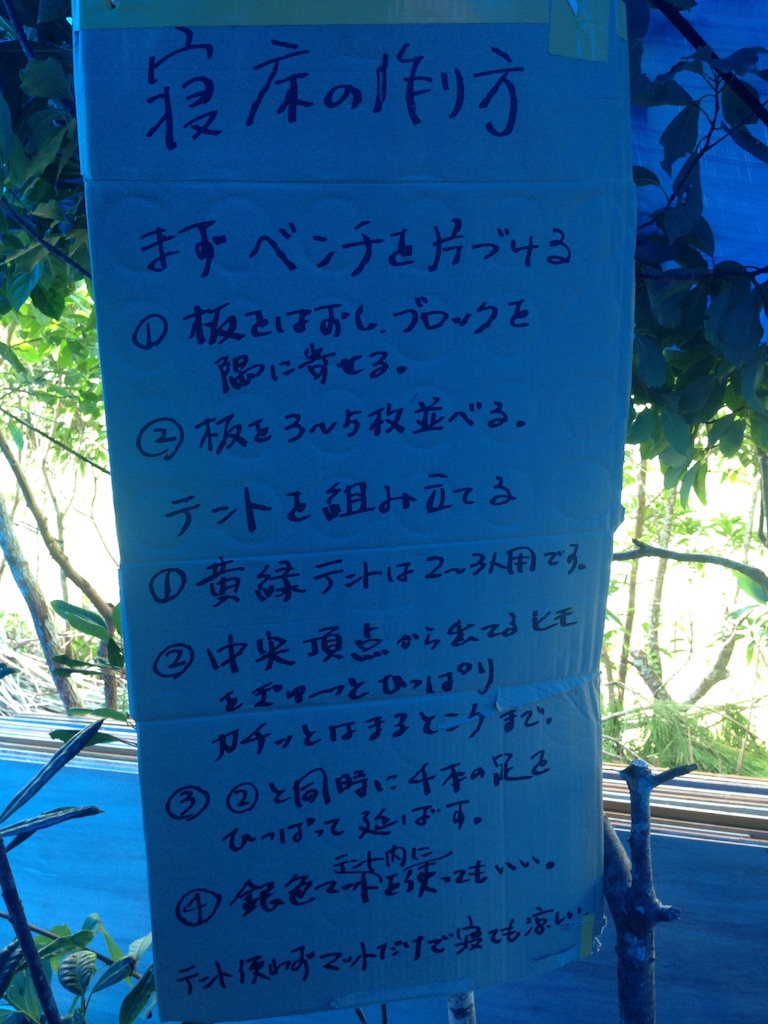 寝床の作り方
まずベンチを片づける
① 板をはずし、ブロックを
隅に寄せる。
② 板を3〜5枚並べる。
テントを組み立てる
① 黄緑テントは2〜3人用です。
② 中央頂点から出てるヒモ
をギューっとひっぱり
カチッとはまるところまで。
③ ②と同時に4本の足を
ひっぱって延ばす。
テント内に
④ 銀色マットを使ってもいい。
テント使わずマットだけで寝ても涼しい